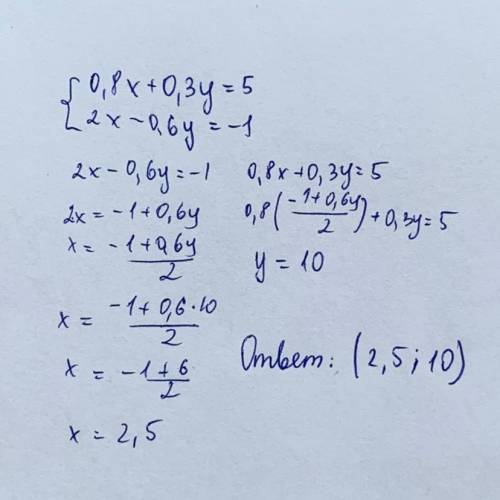 { 0,8x+0,3y=5
2x-0,6y=-1
2x-0,6y=-1
2x=-1+0,6y
x= (-1+0,6y)/2
x= (-1+0,6·10)/2
x= (-1+6)/2
x=2,5
0,8x+0,3y=5
0,8((-1+0,6y)/2)+0,3y=5
y=10
Ответ: (2,5;10)